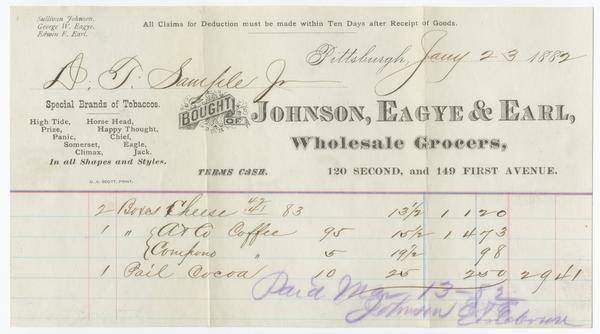 Sullivan Johnson.
George W. Eagye.
Edwin F. Earl.
All Claims for Deduction must be made within Ten Days after Receipt of Goods.
Pittsburgh, Jany 23 1882
Sample Jr
BOUGHT OF
JOHNSON, EAGYE & EARL,
Wholesale Grocers,
TERMS CASH. 120 SECOND, and 149 FIRST AVENUE.
Special Brands of Tobaccos.
High Tide, Horse Head,
Prize, Happy Thought,
Panic, Chief,
Somerset, Eagle,
Climax, Jack.
In all Shapes and Styles.
2 Boxes Cheese 42 41 83 13 1/2 11 20
1 " Coffee 95 15 1/2 14 73
" 5 19 1/2 98
1 Pail Cocoa 10 25 2 50 29 41
Paid Mar 13 - 82
Johnson E & E